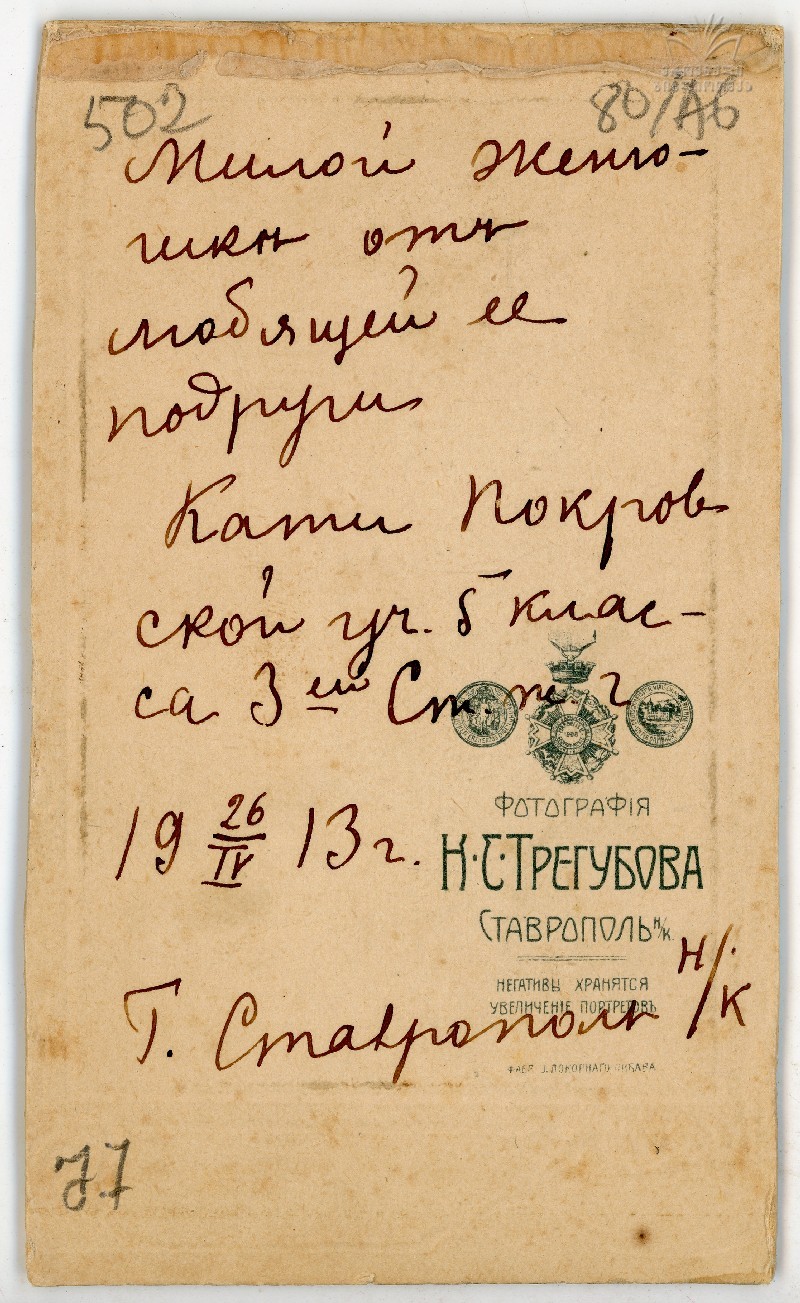 502
80/А6
Милой Женю-
шкѣ отъ
любящей ее
подруги
Кати Покров
ской уч. 5 клас-
са 3ей Ст. ж. г.
19 26/IV 13 г.
ФОТОГРАФІЯ
Н·С·ТРЕГУБОВА
СТАВРОПОЛЬ н/к.
НЕГАТИВЫ ХРАНЯТСЯ
УВЕЛИЧЕНІЕ ПОРТРЕТОВЪ
Г. Ставрополь н/к
77